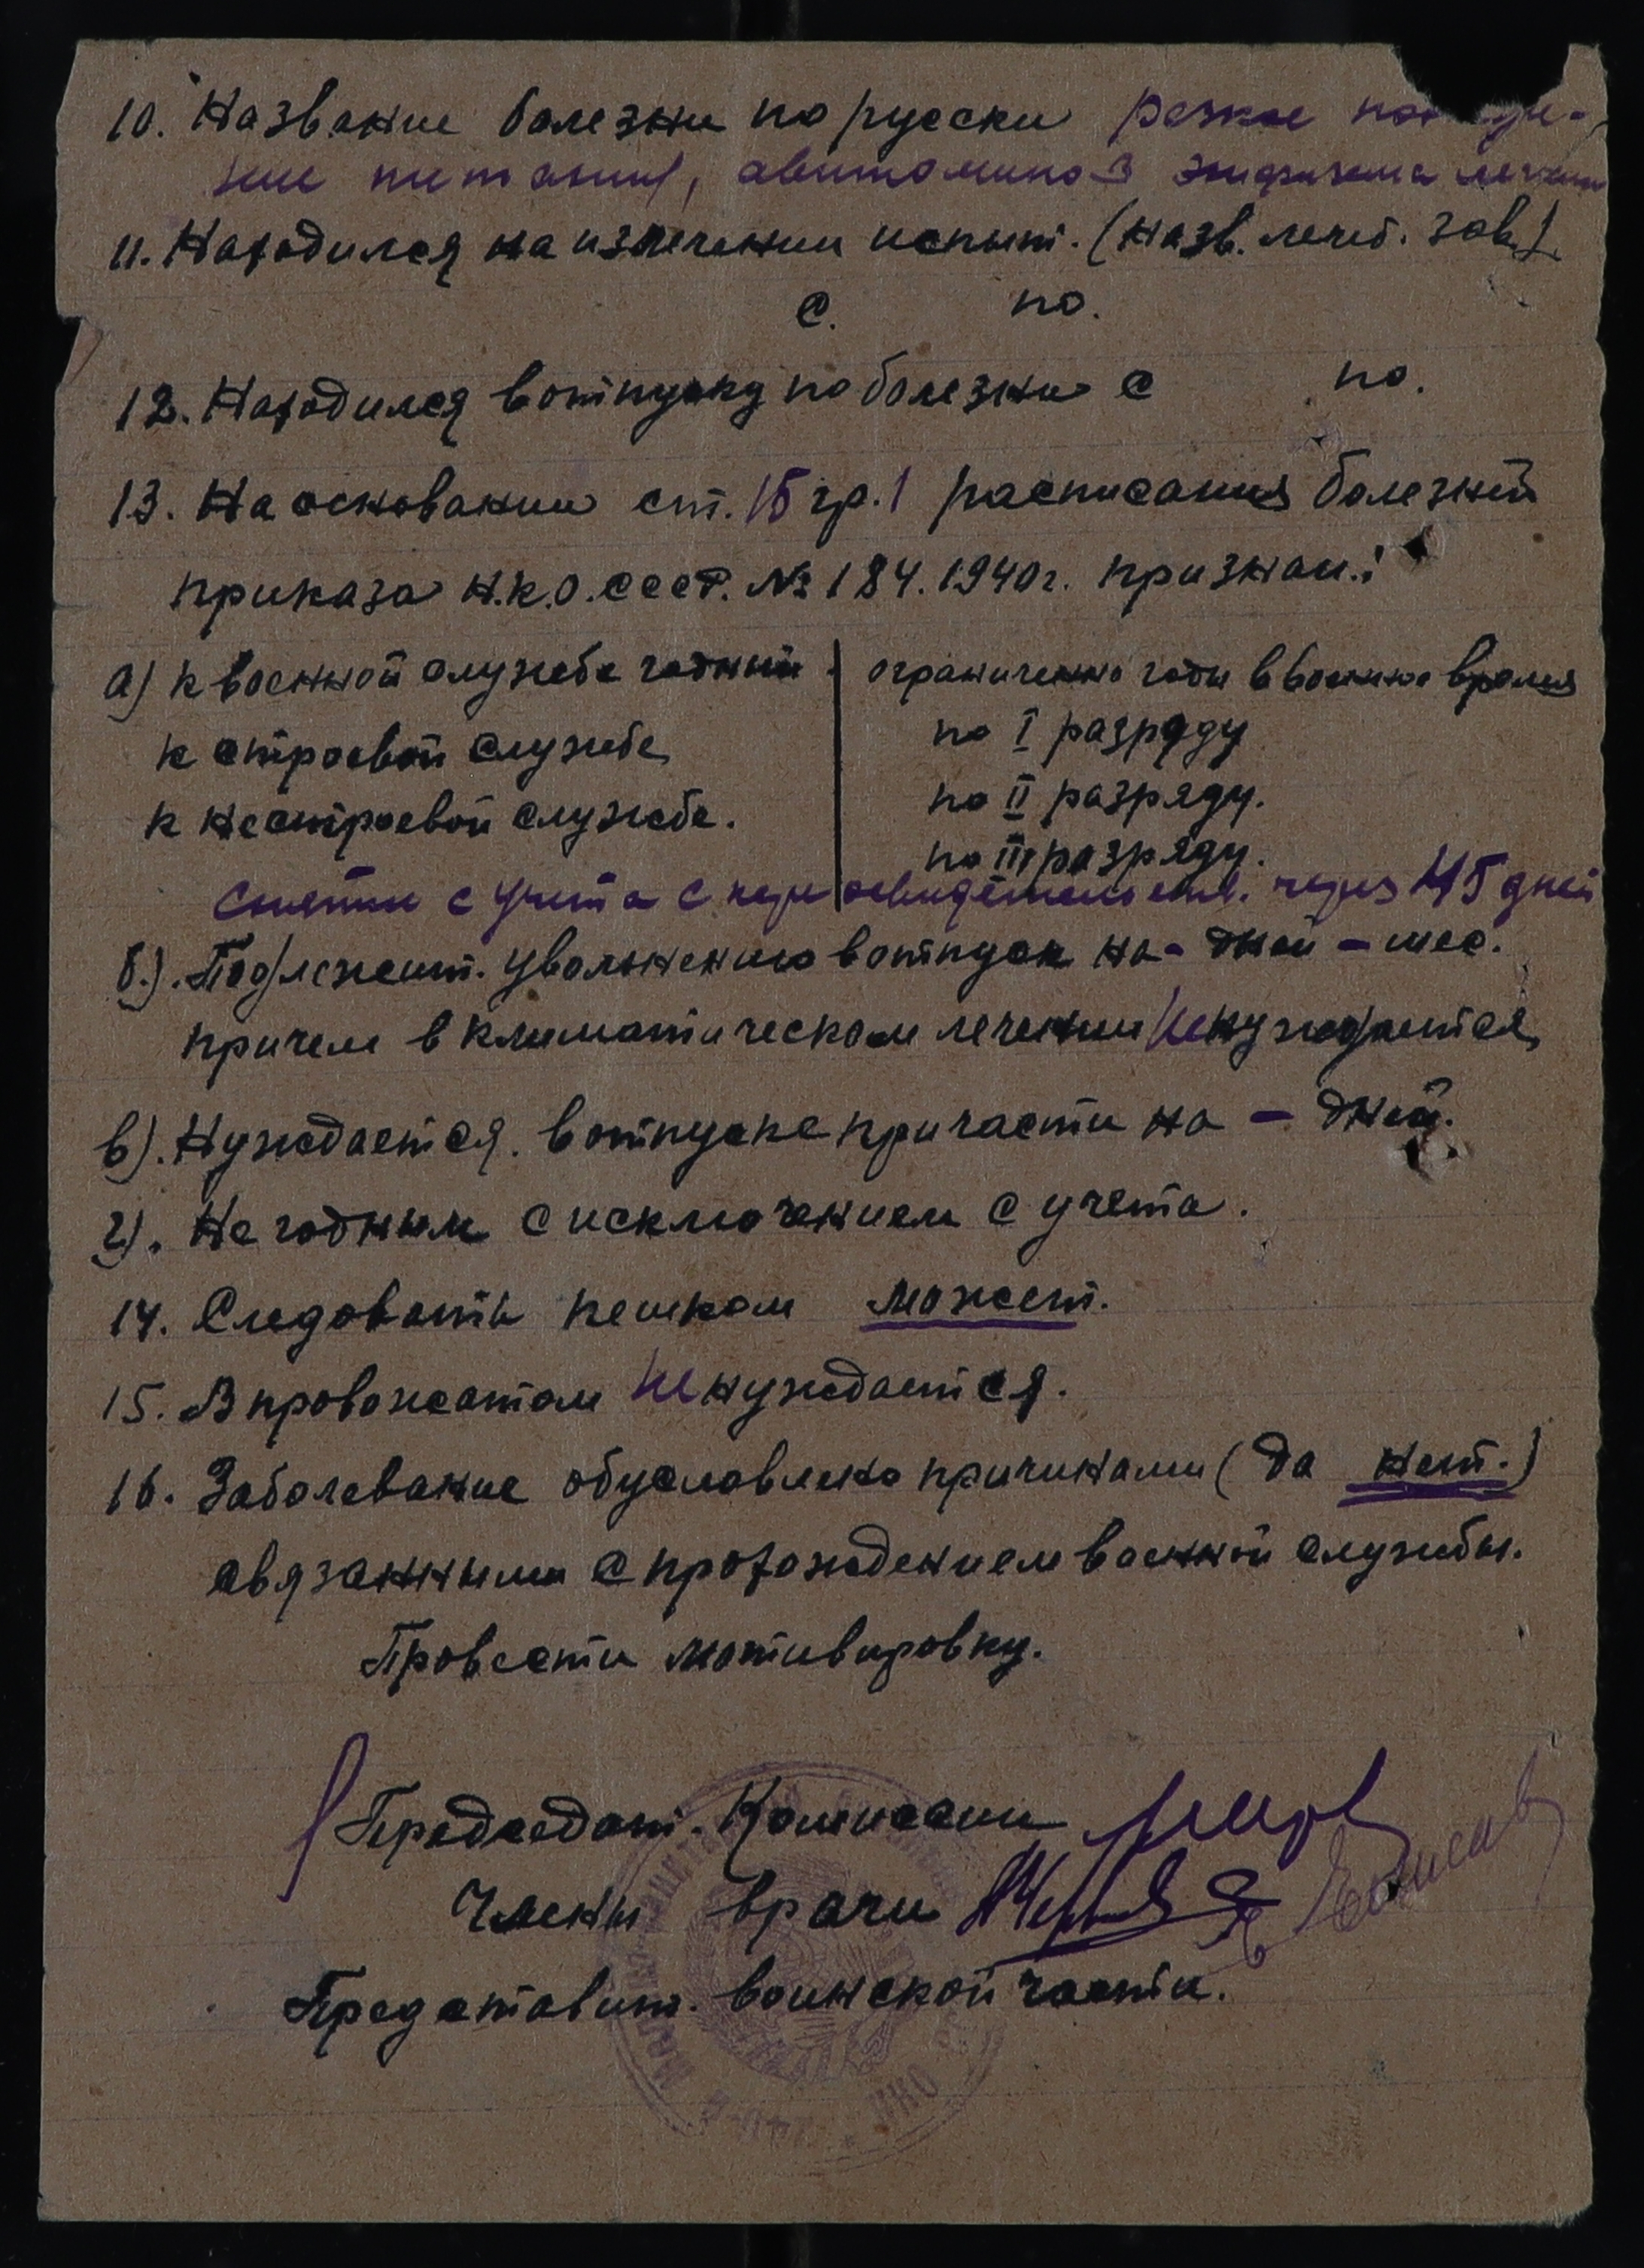 10. Название болезни по русски резкое
ние питания, авитаминоз эмфизема легких
11. Находился на излечении испыт. (назв. лечеб. зав.)
с. по.
12. Находился в отпуску по болезни с по.
13. На основании ст. 15 гр. 1 расписания болезней
приказа Н.К.О. СССР. № 184. 1940 г. признан.:
а) к военной службе годный
к строевой службе
к нестроевой службе.
ограниченно годн в военное время
по I разряду
по II разряду.
по III разряду.
Снятии с учета с переосвидетельств. через 45 дней
б.). Подлежит. увольнению в отпуск на - дней - мес.
причем в климатическом лечении не нуждается
в). Нуждается. в отпуске при части на - дней.
г). Не годным с исключением с учета.
14. Следовать пешком может.
15. В провожатом не нуждается.
16. Заболевание обусловлено причинами (да нет.)
связанными с прохождением военной службы.
Провести мотивировку.
Председат. Комиссии
Члены врачи
Представит. воинской части.